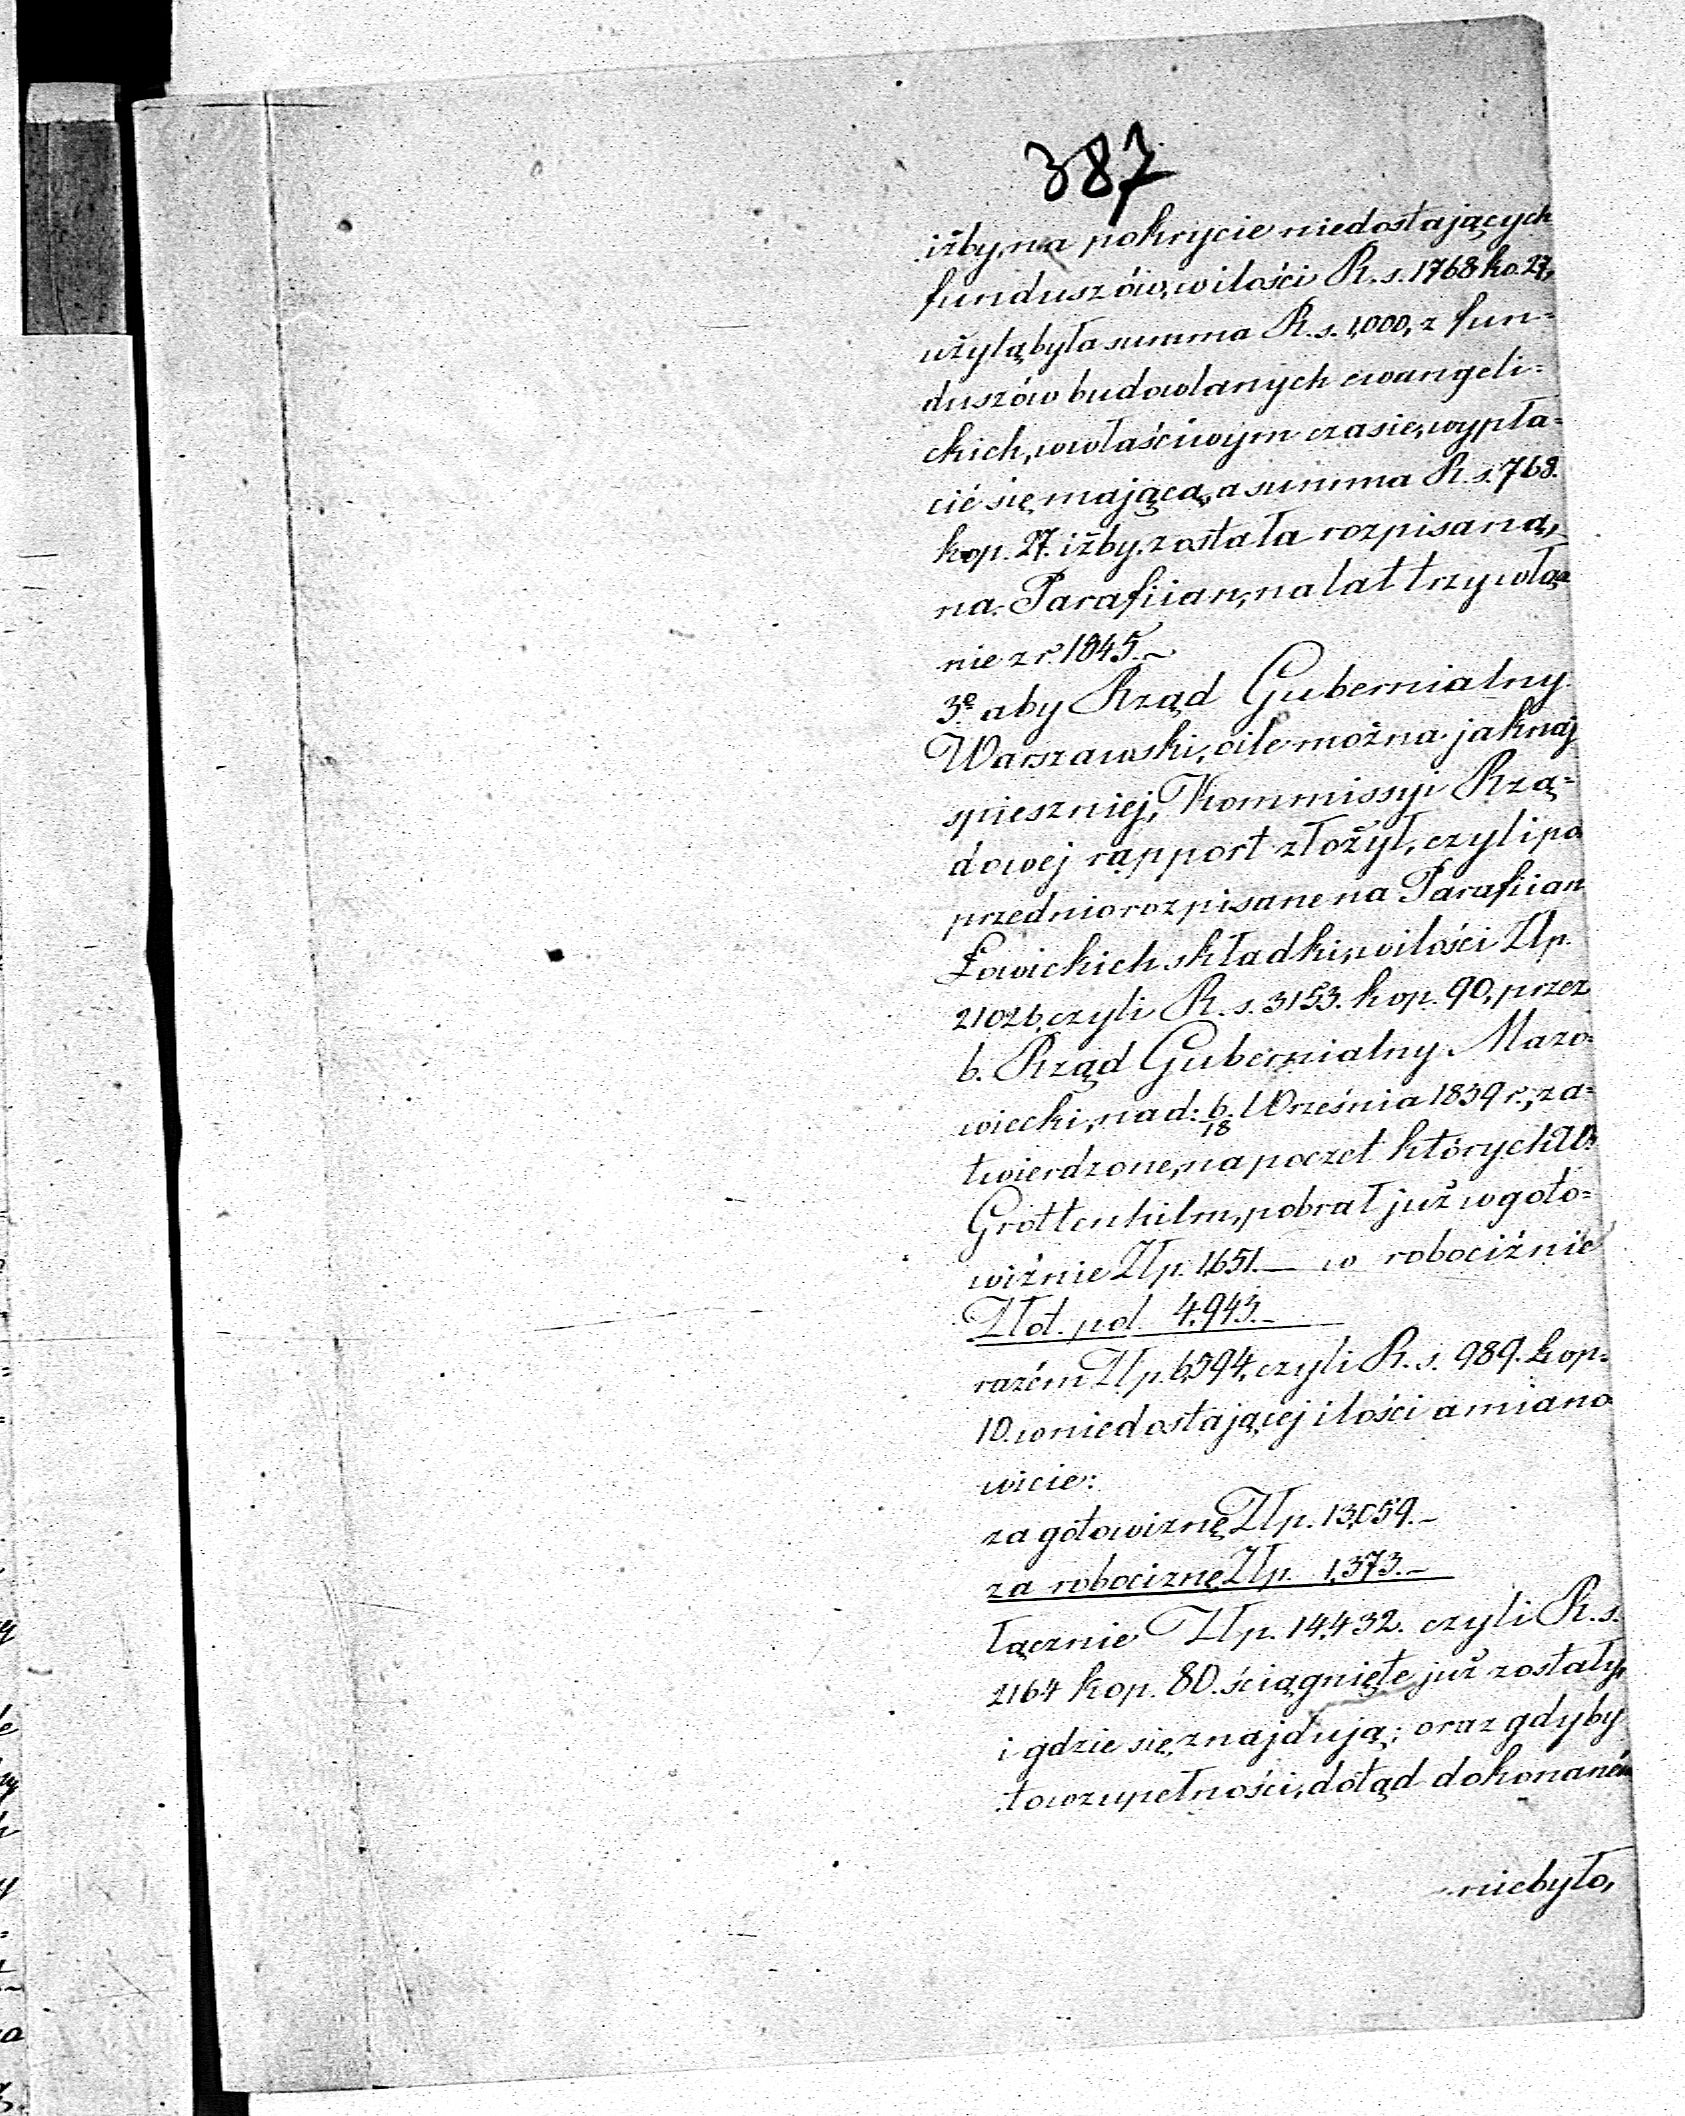 387
iżby, na pokrycie niedostających
funduszów, w ilości R. s. 1768 ko. 27,
użytą była summa R. s. 1,000, z fun=
duszów budowlanych ewangeli=
ckich, w właściwym czasie, wypła=
cić się mająca, a summa R. s. 768.
kop. 27. iżby została rozpisaną,
na Parafiian, na lat trzy włą=
nie z r. 1845.~
3º. aby Rząd Gubernialny
Warszawski, o ile można jaknaj
spieszniej, Kommissyi Rzą=
dowej rapport złożył, czyli po
przednio rozpisane na Parafiian
Łowickich składki, w ilości Złp.
21026, czyli R. s. 3153. kop. 90, przez
b. Rząd Gubernialny Mazo=
wiecki, na d: 6/18 Września 1839 r., za=
twierdzone, na poczet których W.
Grottenhilm, pobrał już w goto=
wiźnie Złp. 1,651.— w robociźnie
Złd. pol. 4,943.—
razém Złp. 6,594, czyli R. s. 989. kop.
10. w niedostającej ilości a miano
wicie:
za gotowiznę Złp. 13,059.—
za robociznę Złp. 1,373.—
łącznie Złp. 14,432. czyli R. s.
2164 kop. 80. ściągnięte już zostały,
i gdzie się znajdują; oraz gdyby
to w zupełności, dotąd dokonaném
niebyło,